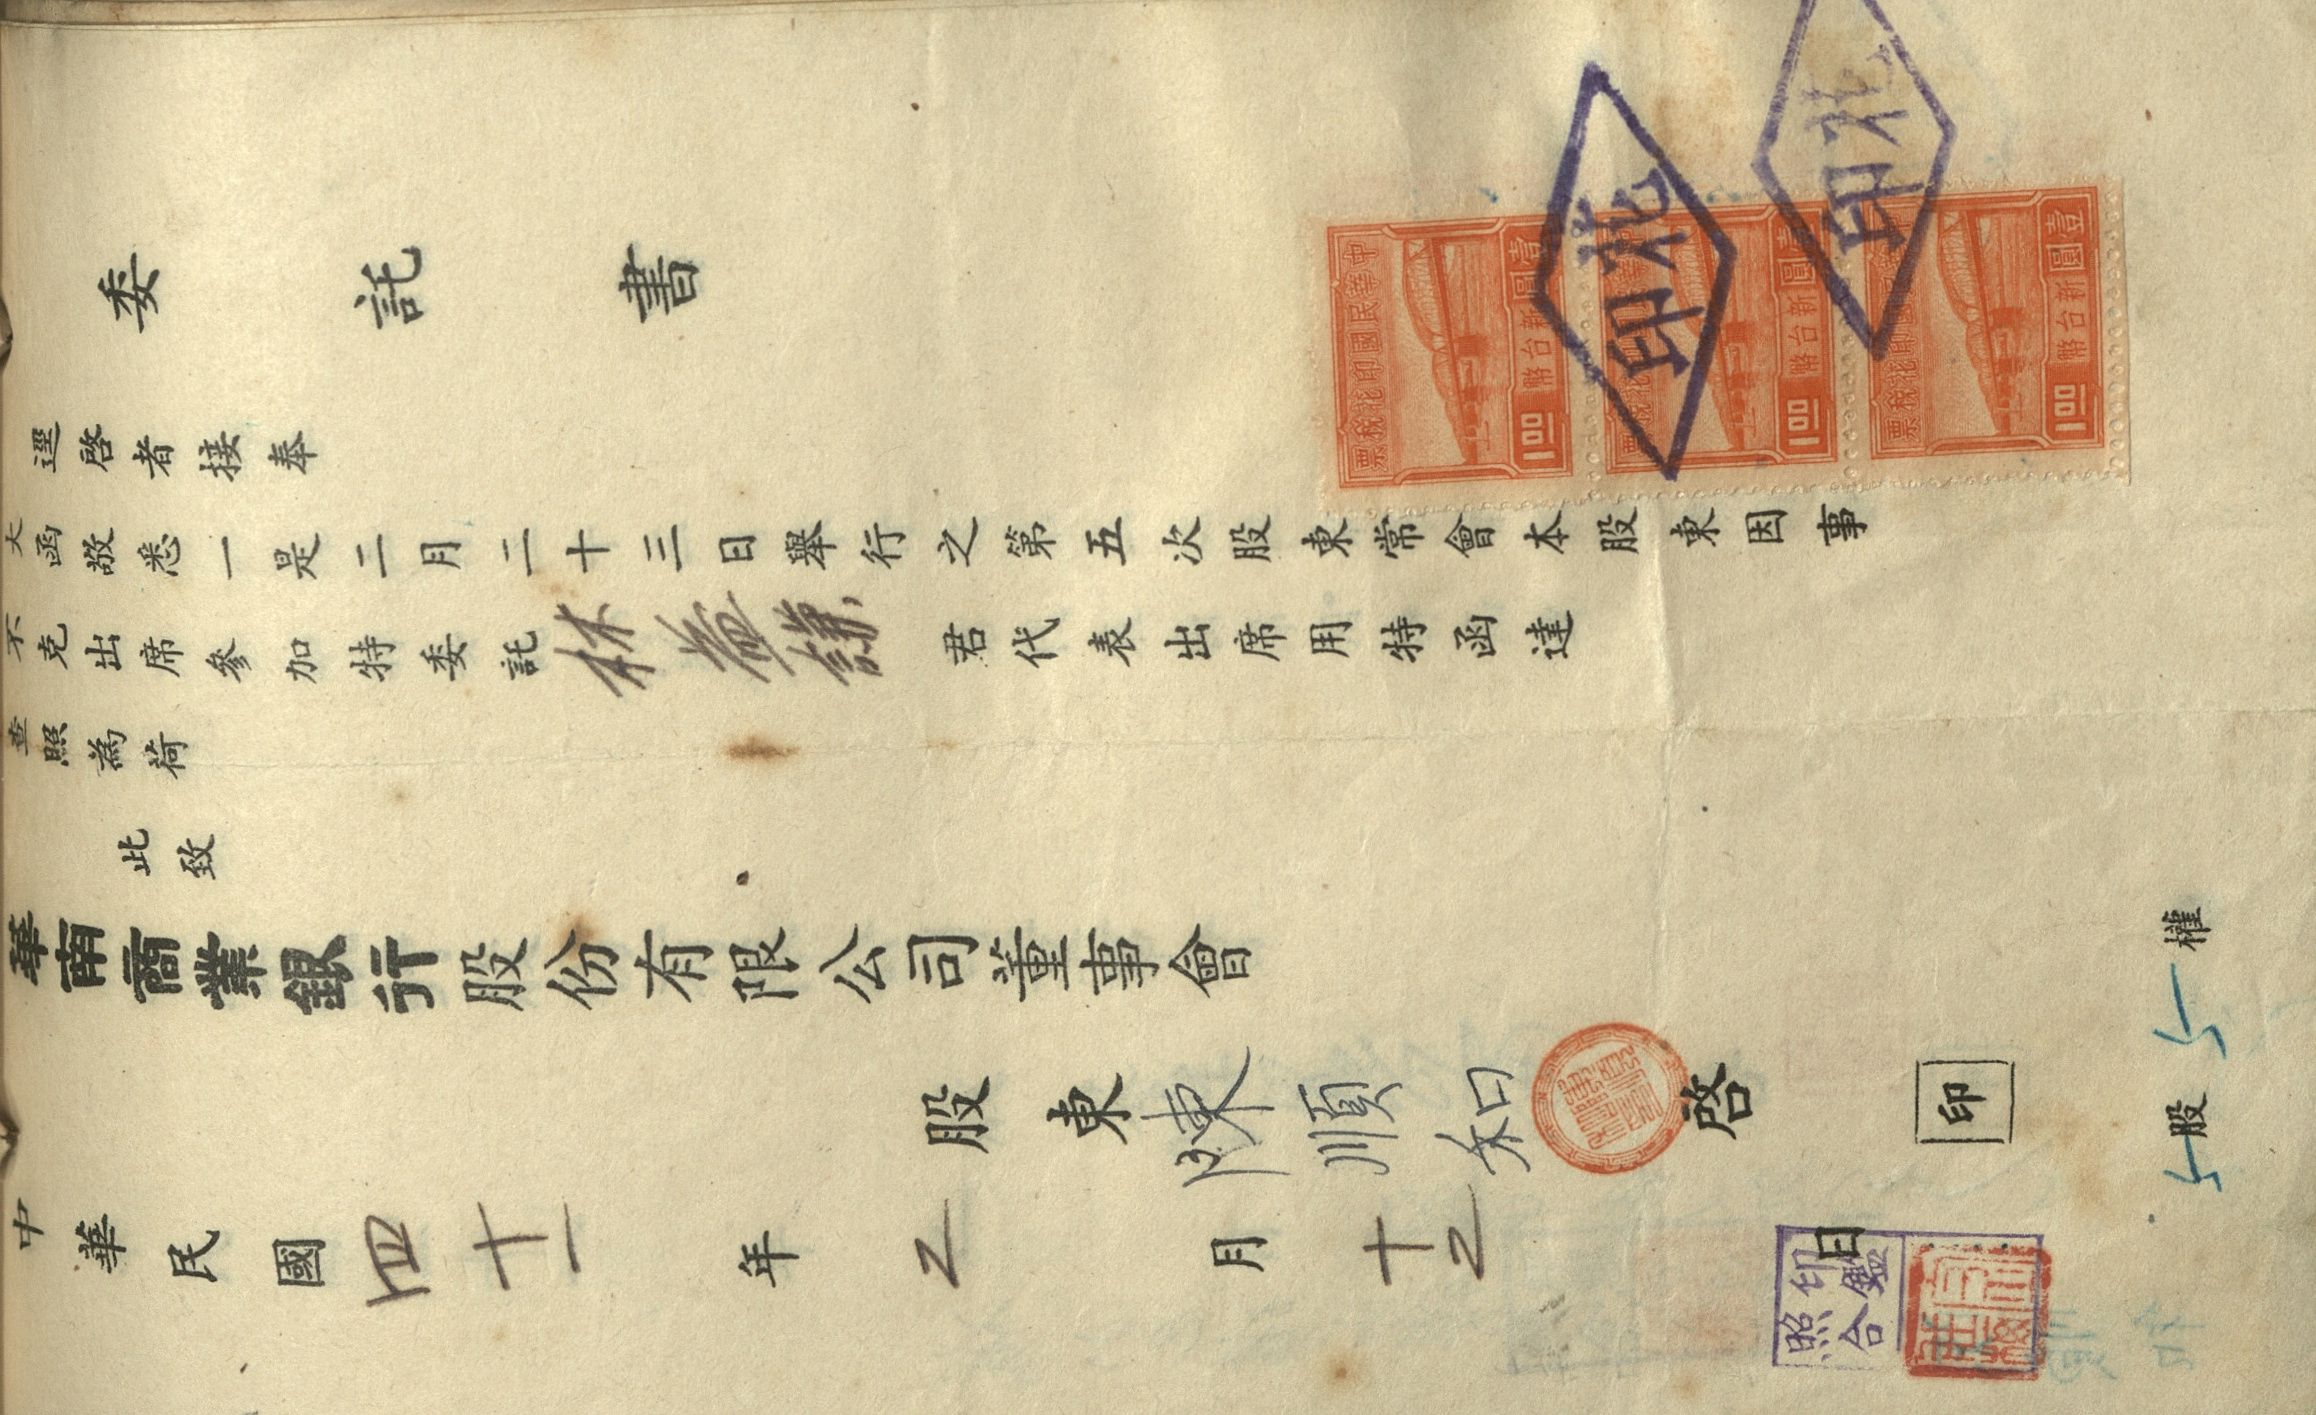 委託書
逕啓者接奉
大函敬悉一是二月二十三日舉行之第五次股東常會本股東因事
不克出席參加特委託林益謙君代表出席用特函達
查照為荷
此致
華南商業銀行股份有限公司董事會
股東陳順和啓
印
中華民國四十一年2月十2日
5股5權
印鑑
照合
中華民國印花稅票
壹圓
新台幣
1.00
壹圓
新台幣
1.00
印花稅票
壹圓
新台幣
1.00
北
印
北
印